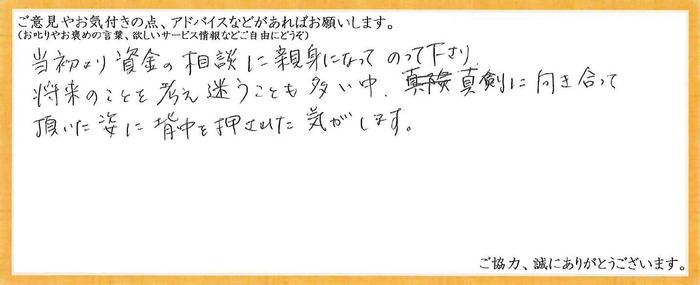 ご意見やお気付きの点、アドバイスなどがあればお願いします。
(お叱りやお褒めの言葉、欲しいサービス情報などご自由にどうぞ)
当初より資金の相談に親身になってのって下さり、
将来のことを考え迷うことも多い中、真剣に向き合って
頂いた姿に背中を押された気がします。
ご協力、誠にありがとうございます。